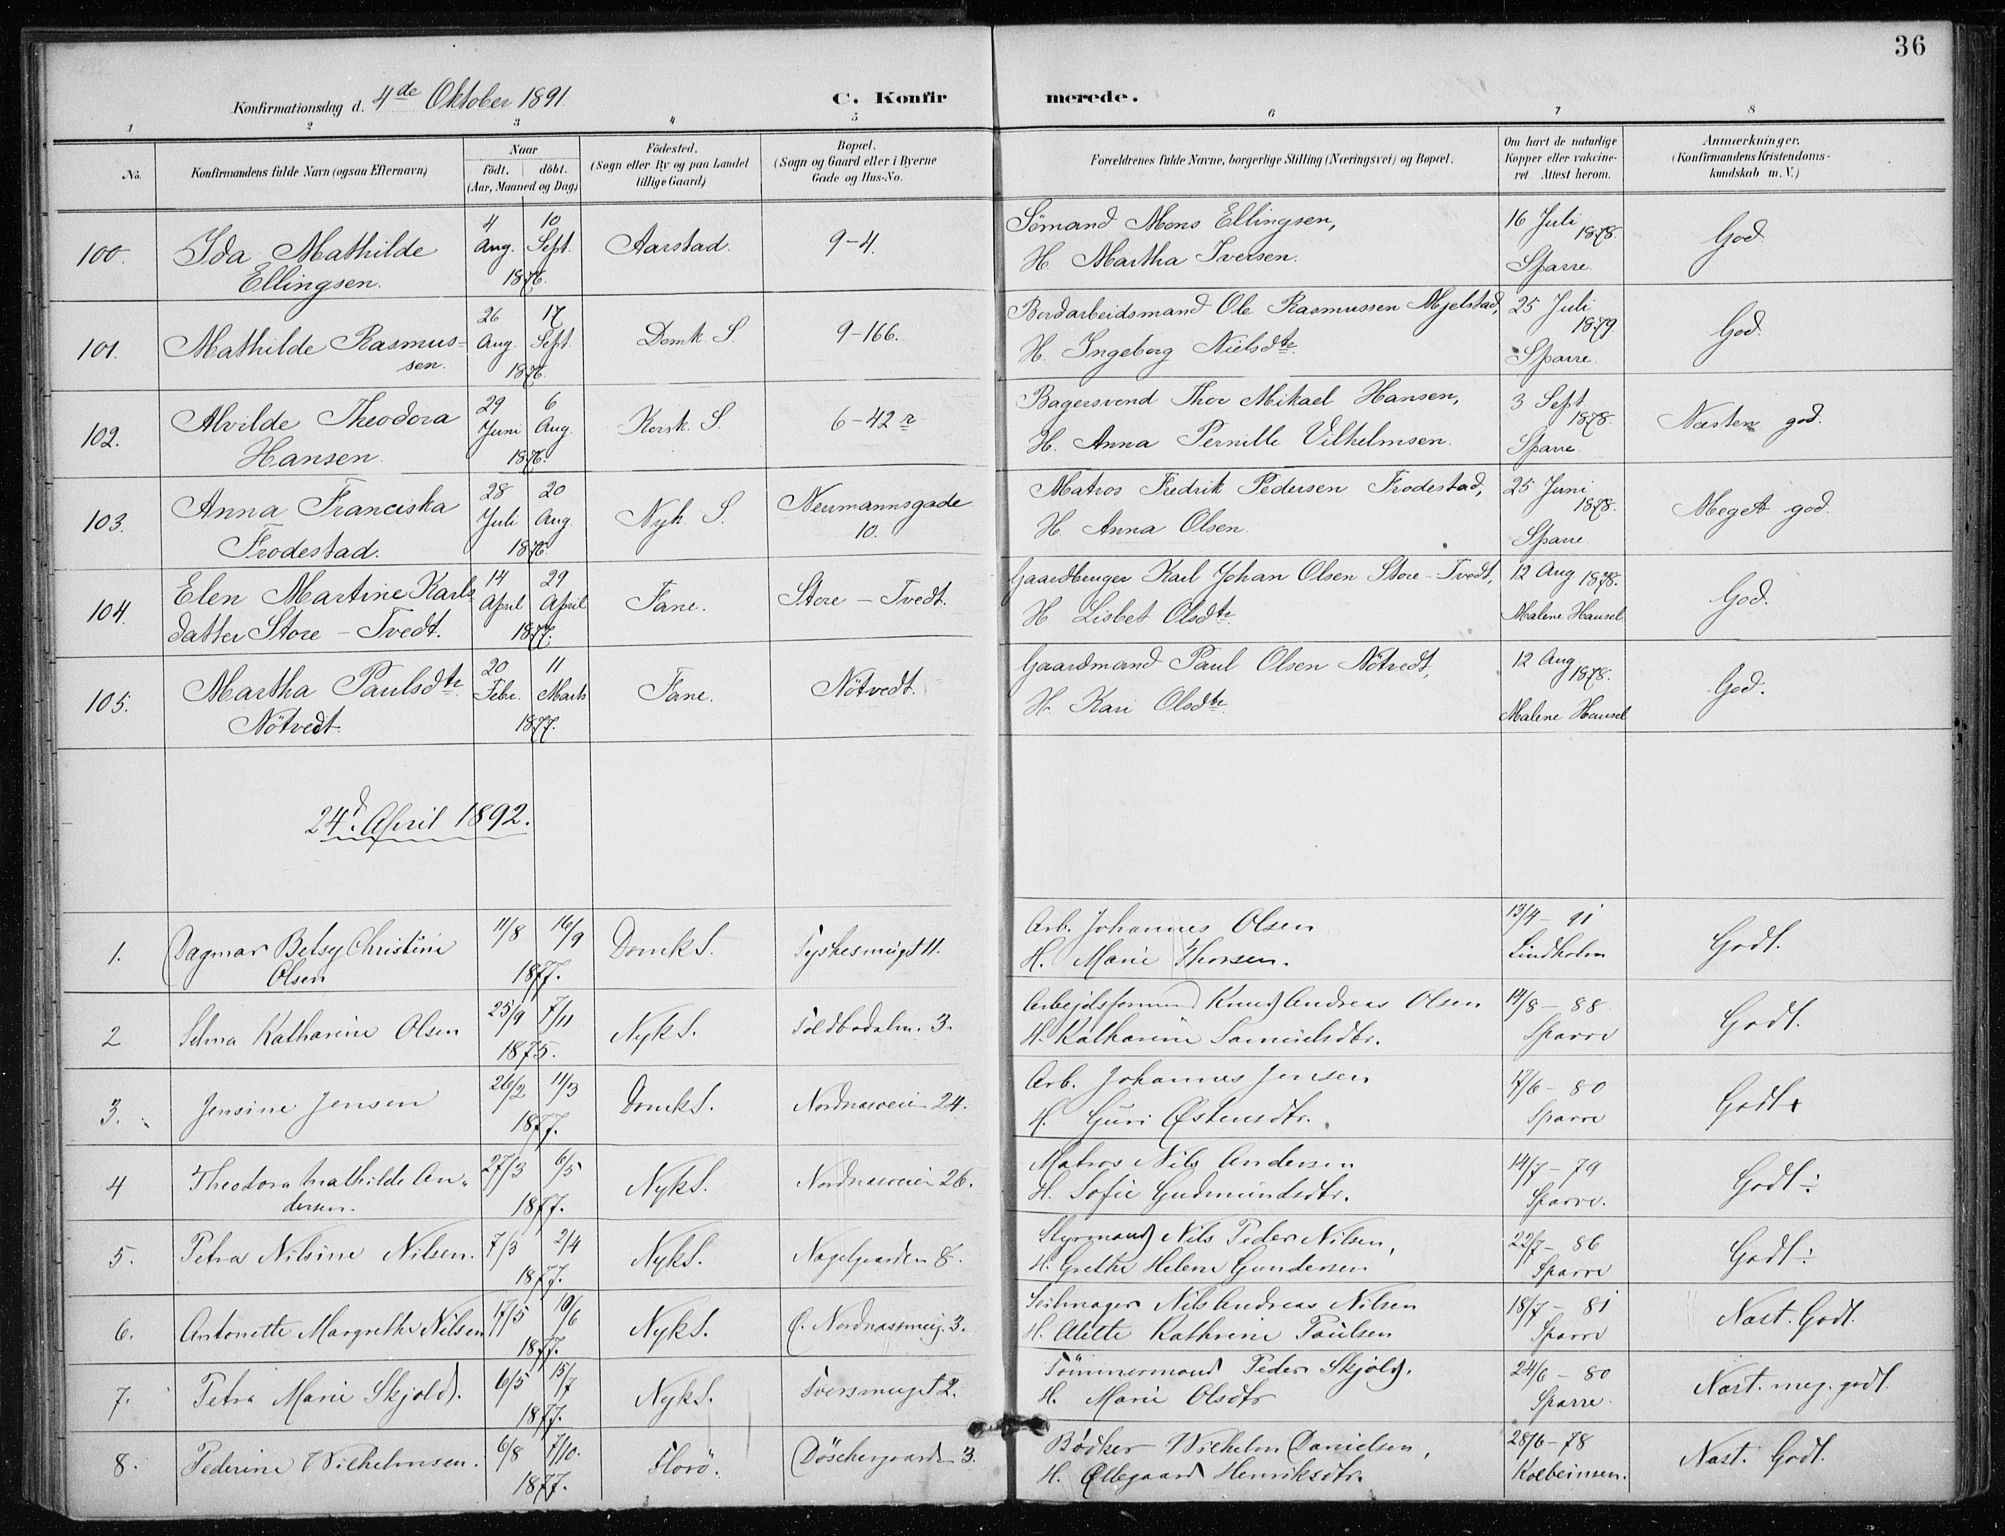 36
Konfirmationsdag d. 4de Oktober 1891.
C. Konfirmerede.
1 2 3 4 5 6 7 8
No.
Konfirmandens fulde Navn (ogsaa Efternavn)
Naar
födt. döbt.
(Aar, Maaned og Dag)
Födested.
(Sogn eller By og paa Landet
tillige Gaard)
Bopæl.
(Sogn og Gaard eller i Byerne
Gade og Hus-No.
Forældrenes fulde Navne, borgerlige Stilling (Næringsvei) og Bopæl.
Om havt de naturlige
Kopper eller vakcine-
ret. Attest herom.
Anmærkninger.
(Konfirmandens Kristendoms-
kundskab m. V.)
100. Ida Mathilde Ellingsen. 4 Aug. 10 Sept. 1876. Aarstad. 9-4. Sömand Mons Ellingsen, H. Martha Iversen. 16 Juli 1878. Sparre. God.
101. Mathilde Rasmussen. 26 Aug. 17 Sept. 1876. Domk. S. 9-166. Bordarbeidsmand Ole Rasmussen Mjelstad, H. Ingeborg Nielsdtr. 25 Juli 1879 Sparre. God.
102. Alvilde Theodora Hansen. 29 Juni 6 Aug. 1876. Korsk. S. 6-42a Bagersvend Thor Mikael Hansen, H. Anna Pernille Vilhelmsen. 3 Sept 1878. Sparre. Næsten god.
103. Anna Franciska Frodestad. 28 Juli 20 Aug. 1876. Nyk. S. Neumannsgade 10. Matros Fredrik Pedersen Frodestad, H. Anna Olsen. 25 Juni 1878. Sparre. Meget god.
104. Elen Martine Karlsdatter Store-Tvedt. 14 April 29 April 1877. Fane. Store-Tvedt. Gaardbruger Karl Johan Olsen Store-Tvedt, H. Lisbet Olsdtr. 12 Aug 1878. Malene Hausel God.
105. Martha Paulsdtr Nötvedt. 20 Febr. 11 Marts 1877. Fane. Nötvedt. Gaardmand Paul Olsen Nötvedt, H. Kari Olsdtr. 12 Aug 1878. Malene Hausel God.
24d. April 1892.
1. Dagmar Betsy Christine Olsen 11/8 16/9 1877. Domk S. Tyskesmuget 11. Arb. Johannes Olsen H. Marie Thorsen. 13/4 - 91 Lindholm Godt.
2 Selma Katharine Olsen 25/9 7/11 1875. Nyk S. Toldbodalm. 3. Arbejdsformand Knud Andreas Olsen H. Katharine Samuelsdtr. 14/8 - 88 Sparre Godt.
3. Jensine Jensen 26/2 11/3 1877. Domk S. Nordnæsveien 24. Arb. Johannes Jensen H. Guri Østensdtr. 17/6 - 80 Sparre Godt+
4 Theodora Mathilde Andersen. 27/3 6/5 1877. Nyk S. Nordnæsveien 26. Matros Nils Andersen H. Sofie Gudmundsdtr. 14/7 - 79 Sparre. Godt÷
5. Petra Nilsine Nilsen. 7/3 2/4 1877. Nyk S. Nagelgaarden 8. Styrmand Nils Peder Nilsen, H. Grethe Helene Gundersen 22/7 - 86 Sparre Godt÷
6. Antonette Margrethe Nilsen 17/5 10/6 1877. Nyk S. Ø. Nordnæssmug. 3. Seilmager Nils Andreas Nilsen H. Alette Kathrine Paulsen 18/7 - 81 Sparre Næst. Godt.
7. Petra Marie Skjold. 6/5 15/7 1877. Nyk S. Tversmuget 2. Tömmermand Peder Skjold. H. Marie Olsdtr 24/6 - 80 Sparre. Næst. meg. godt.
8. Pederine Wilhelmsen. 6/8 7/10. 1877. Florö. Döschergaarden 3. Bödker Wilhelm Danielsen, H. Øllegaard Henriksdtr. 28/6 - 78 Kolbeinsen. Næst. Godt.